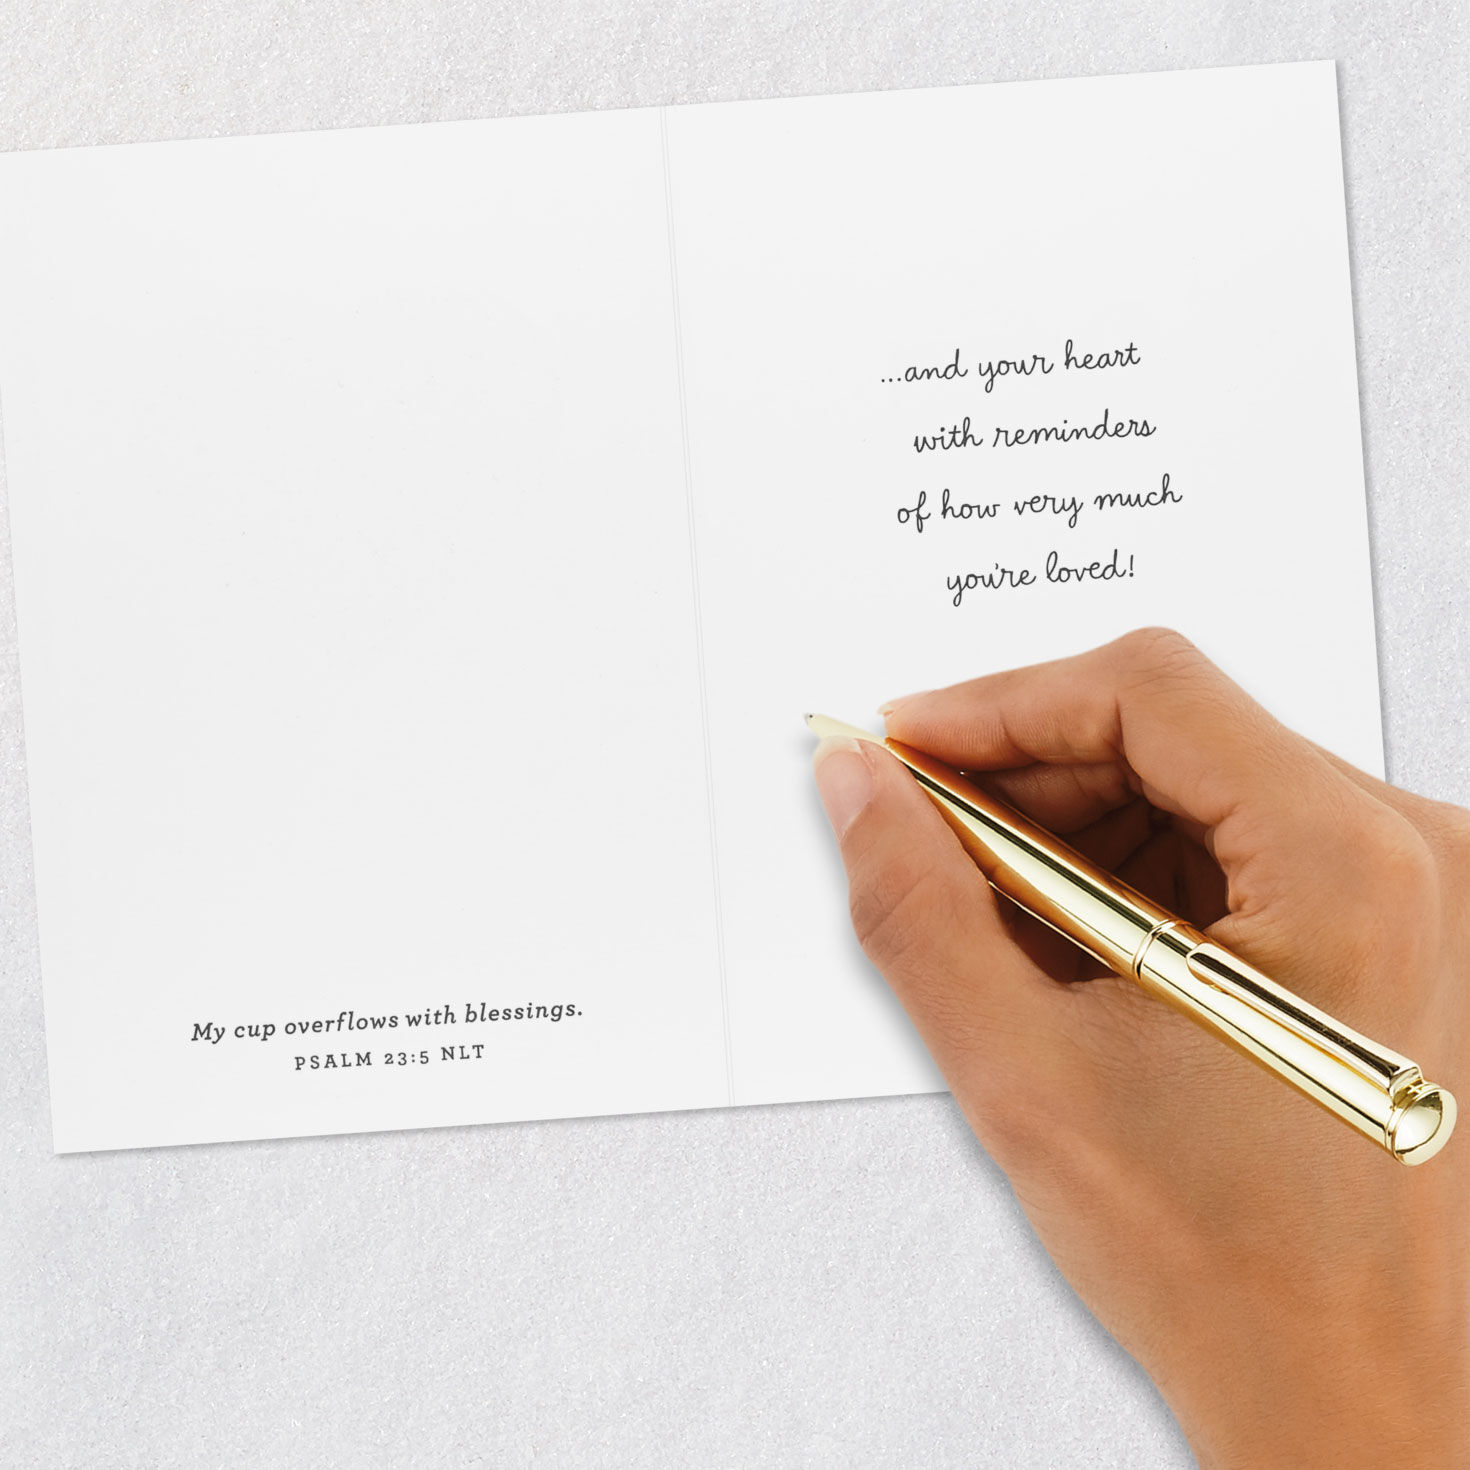 My cup overflows with blessings.
PSALM 23:5 NLT
...and your heart
with reminders
of how very much
you're loved!